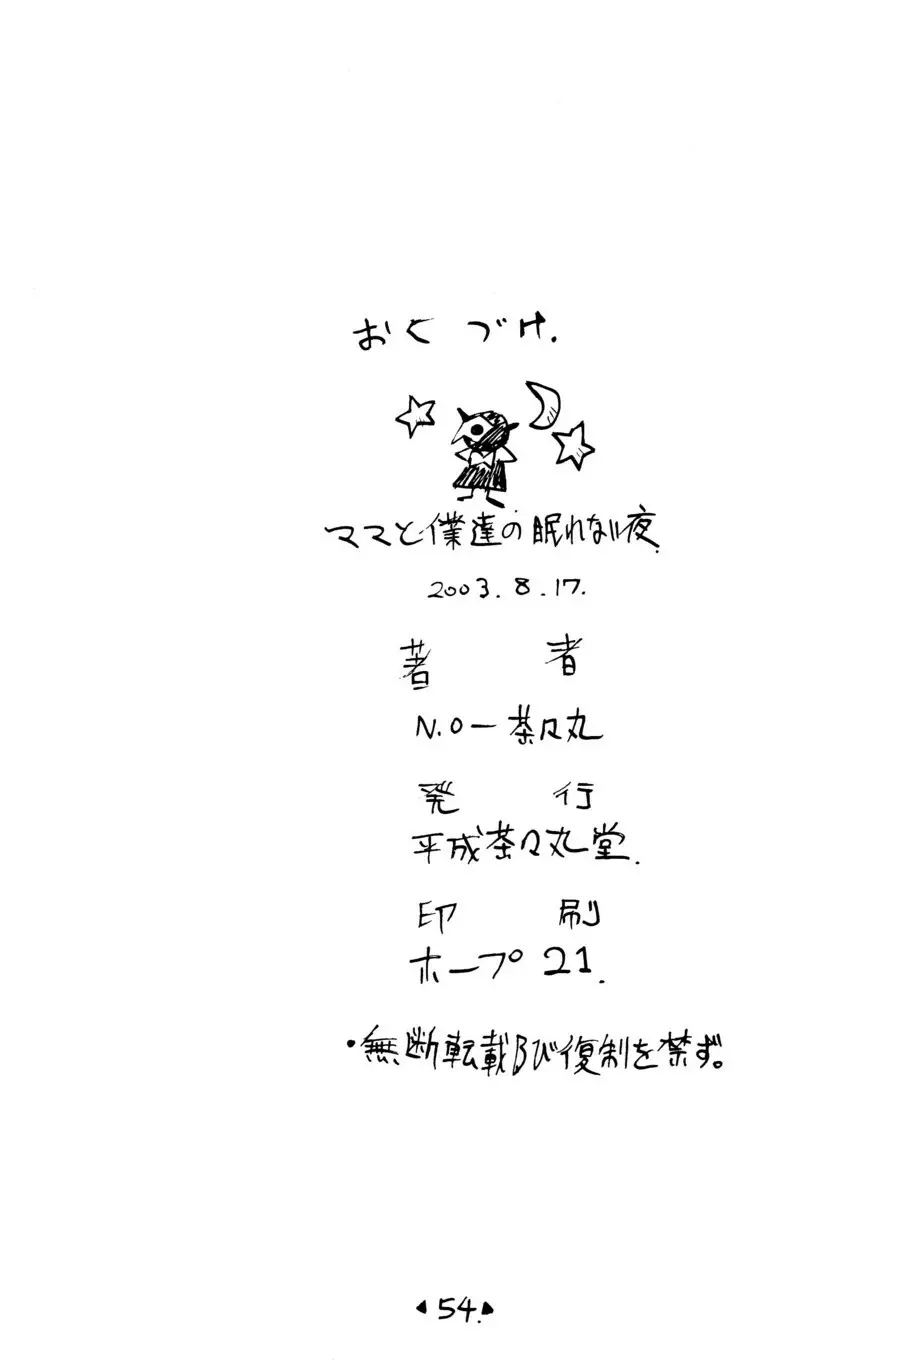 おくづけ.
ママと僕達の眠れない夜.
2003.8.17.
著 者
N.O－茶々丸
発 行
平成茶々丸堂.
印 刷
ホープ21.
・無断転載及び復制を禁ず。
54.